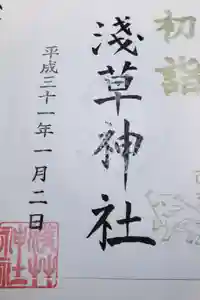 初詣
淺草神社
平成三十一年一月二日
淺草神社